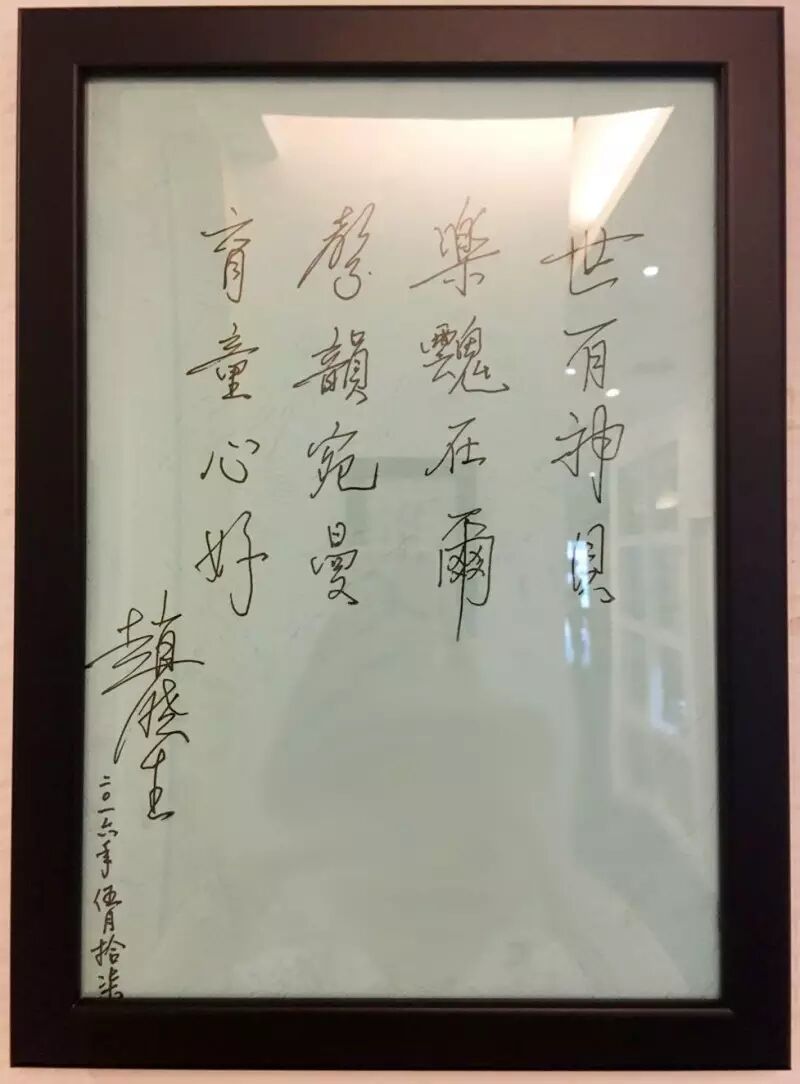 世有神貝
樂魂在爾
韻宛曼
育童心好
趙曉生
二〇一六年伍月拾柒